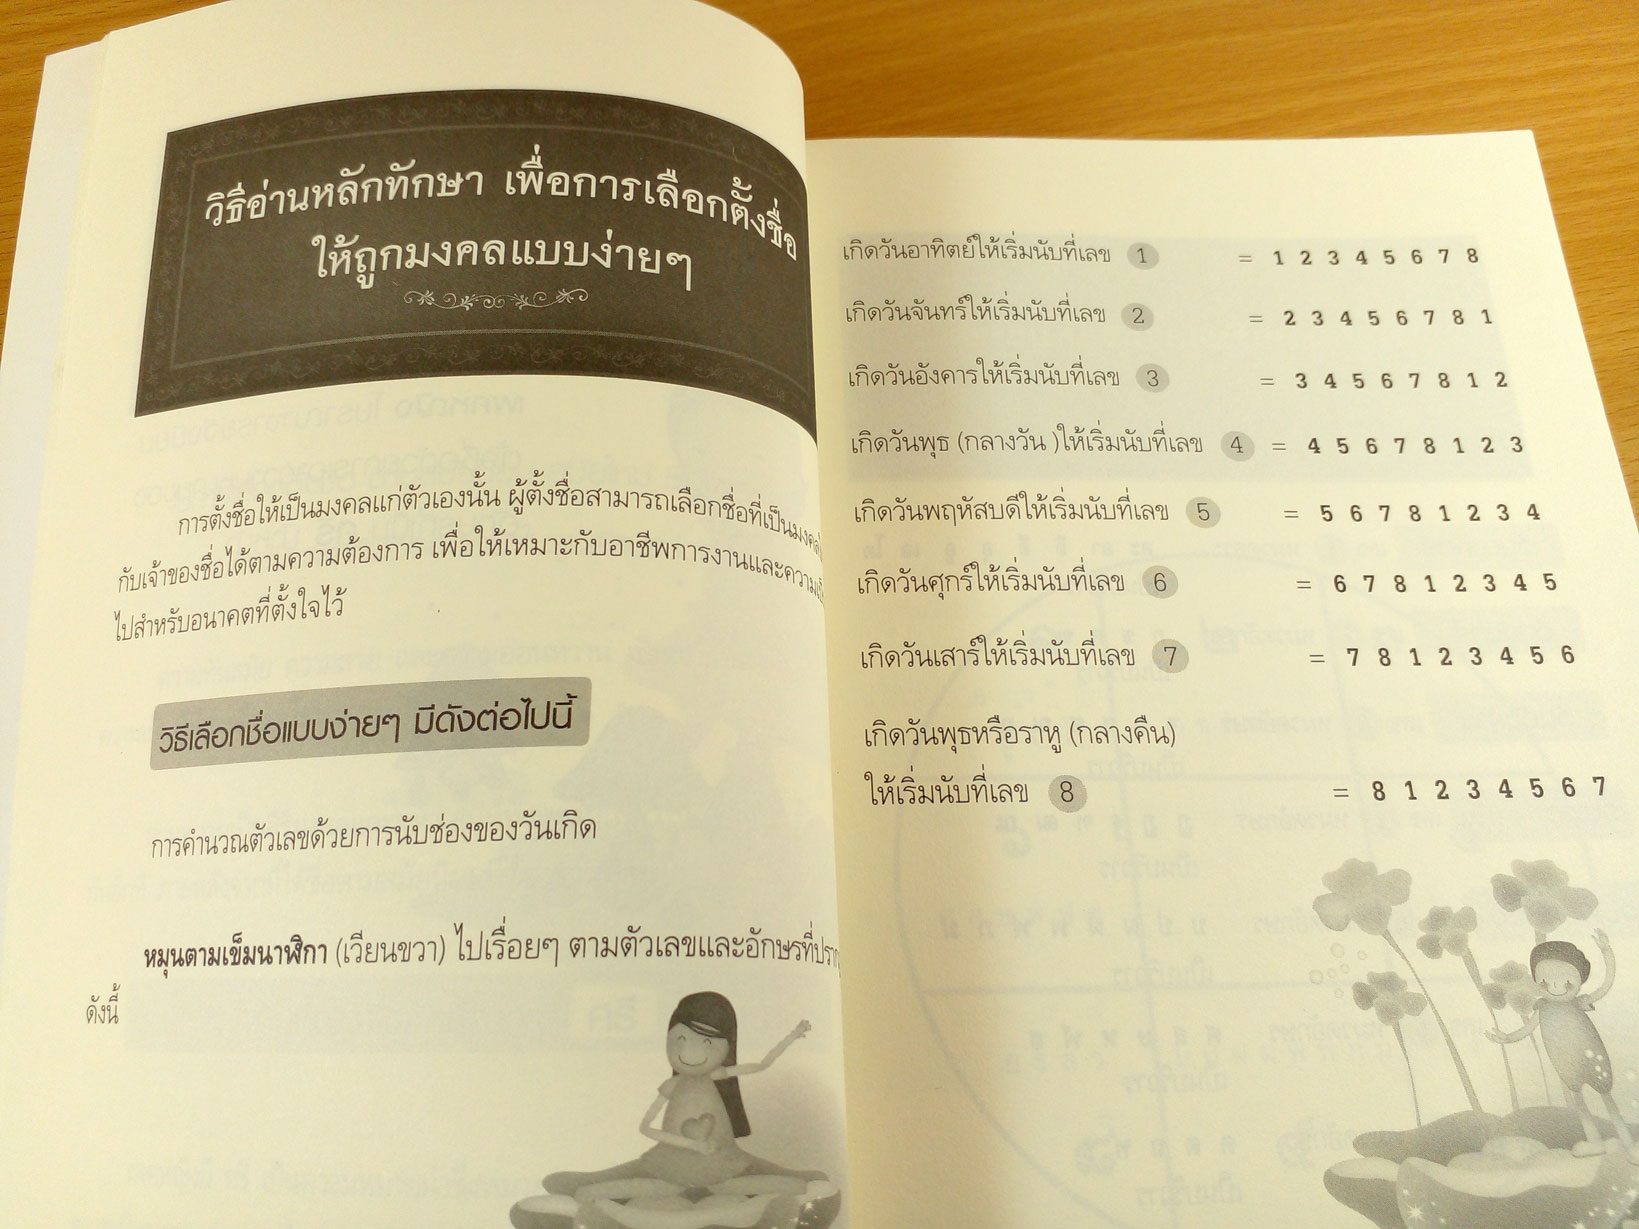 วิธีอ่านหลักทักษา เพื่อการเลือกตั้งชื่อ
ให้ถูกมงคลแบบง่ายๆ
การตั้งชื่อให้เป็นมงคลแก่ตัวเองนั้น ผู้ตั้งชื่อสามารถเลือกชื่อที่เป็นมงคล
กับเจ้าของชื่อได้ตามความต้องการ เพื่อให้เหมาะกับอาชีพการงานและ
ไปสำหรับอนาคตที่ตั้งใจไว้
วิธีเลือกชื่อแบบง่ายๆ มีดังต่อไปนี้
การคำนวณตัวเลขด้วยการนับช่องของวันเกิด
หมุนตามเข็มนาฬิกา (เวียนขวา) ไปเรื่อยๆ ตามตัวเลขและอักษรที่
ดังนี้
เกิดวันอาทิตย์ให้เริ่มนับที่เลข 1 = 1 2 3 4 5 6 7 8
เกิดวันจันทร์ให้เริ่มนับที่เลข 2 = 2 3 4 5 6 7 8 1
เกิดวันอังคารให้เริ่มนับที่เลข 3 = 3 4 5 6 7 8 1 2
เกิดวันพุธ (กลางวัน )ให้เริ่มนับที่เลข 4 = 4 5 6 7 8 1 2 3
เกิดวันพฤหัสบดีให้เริ่มนับที่เลข 5 = 5 6 7 8 1 2 3 4
เกิดวันศุกร์ให้เริ่มนับที่เลข 6 = 6 7 8 1 2 3 4 5
เกิดวันเสาร์ให้เริ่มนับที่เลข 7 = 7 8 1 2 3 4 5 6
เกิดวันพุธหรือราหู (กลางคืน)
ให้เริ่มนับที่เลข 8 = 8 1 2 3 4 5 6 7